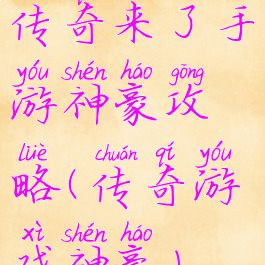 传奇来了手
yóu shén háo gōng
游神豪攻
lüè chuán qí yóu
略(传奇游
xì shén háo
戏神豪)